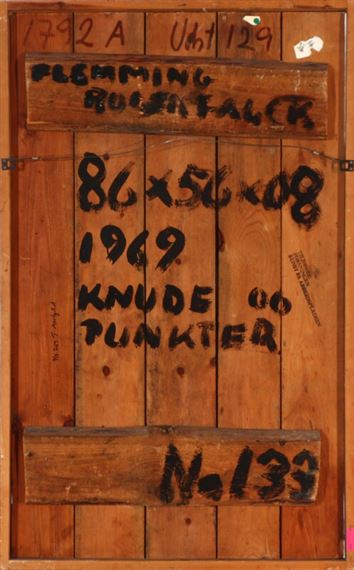 1792 A Udst 129
FLEMMING
ROSENFALCK
86x56x08
1969
KNUDE OG
PUNKTER
No. 133